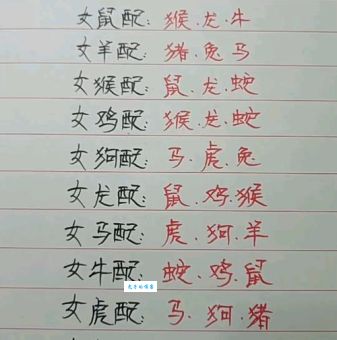 女鼠配：猴.龙.牛
女羊配：猪.兔.马
女猴配：鼠.龙.蛇
女鸡配：猴.龙.蛇
女狗配：马.虎.兔
女龙配：鼠.鸡.猴
女马配：虎.狗.羊
女牛配：蛇.鸡.鼠
女虎配：马.狗.猪